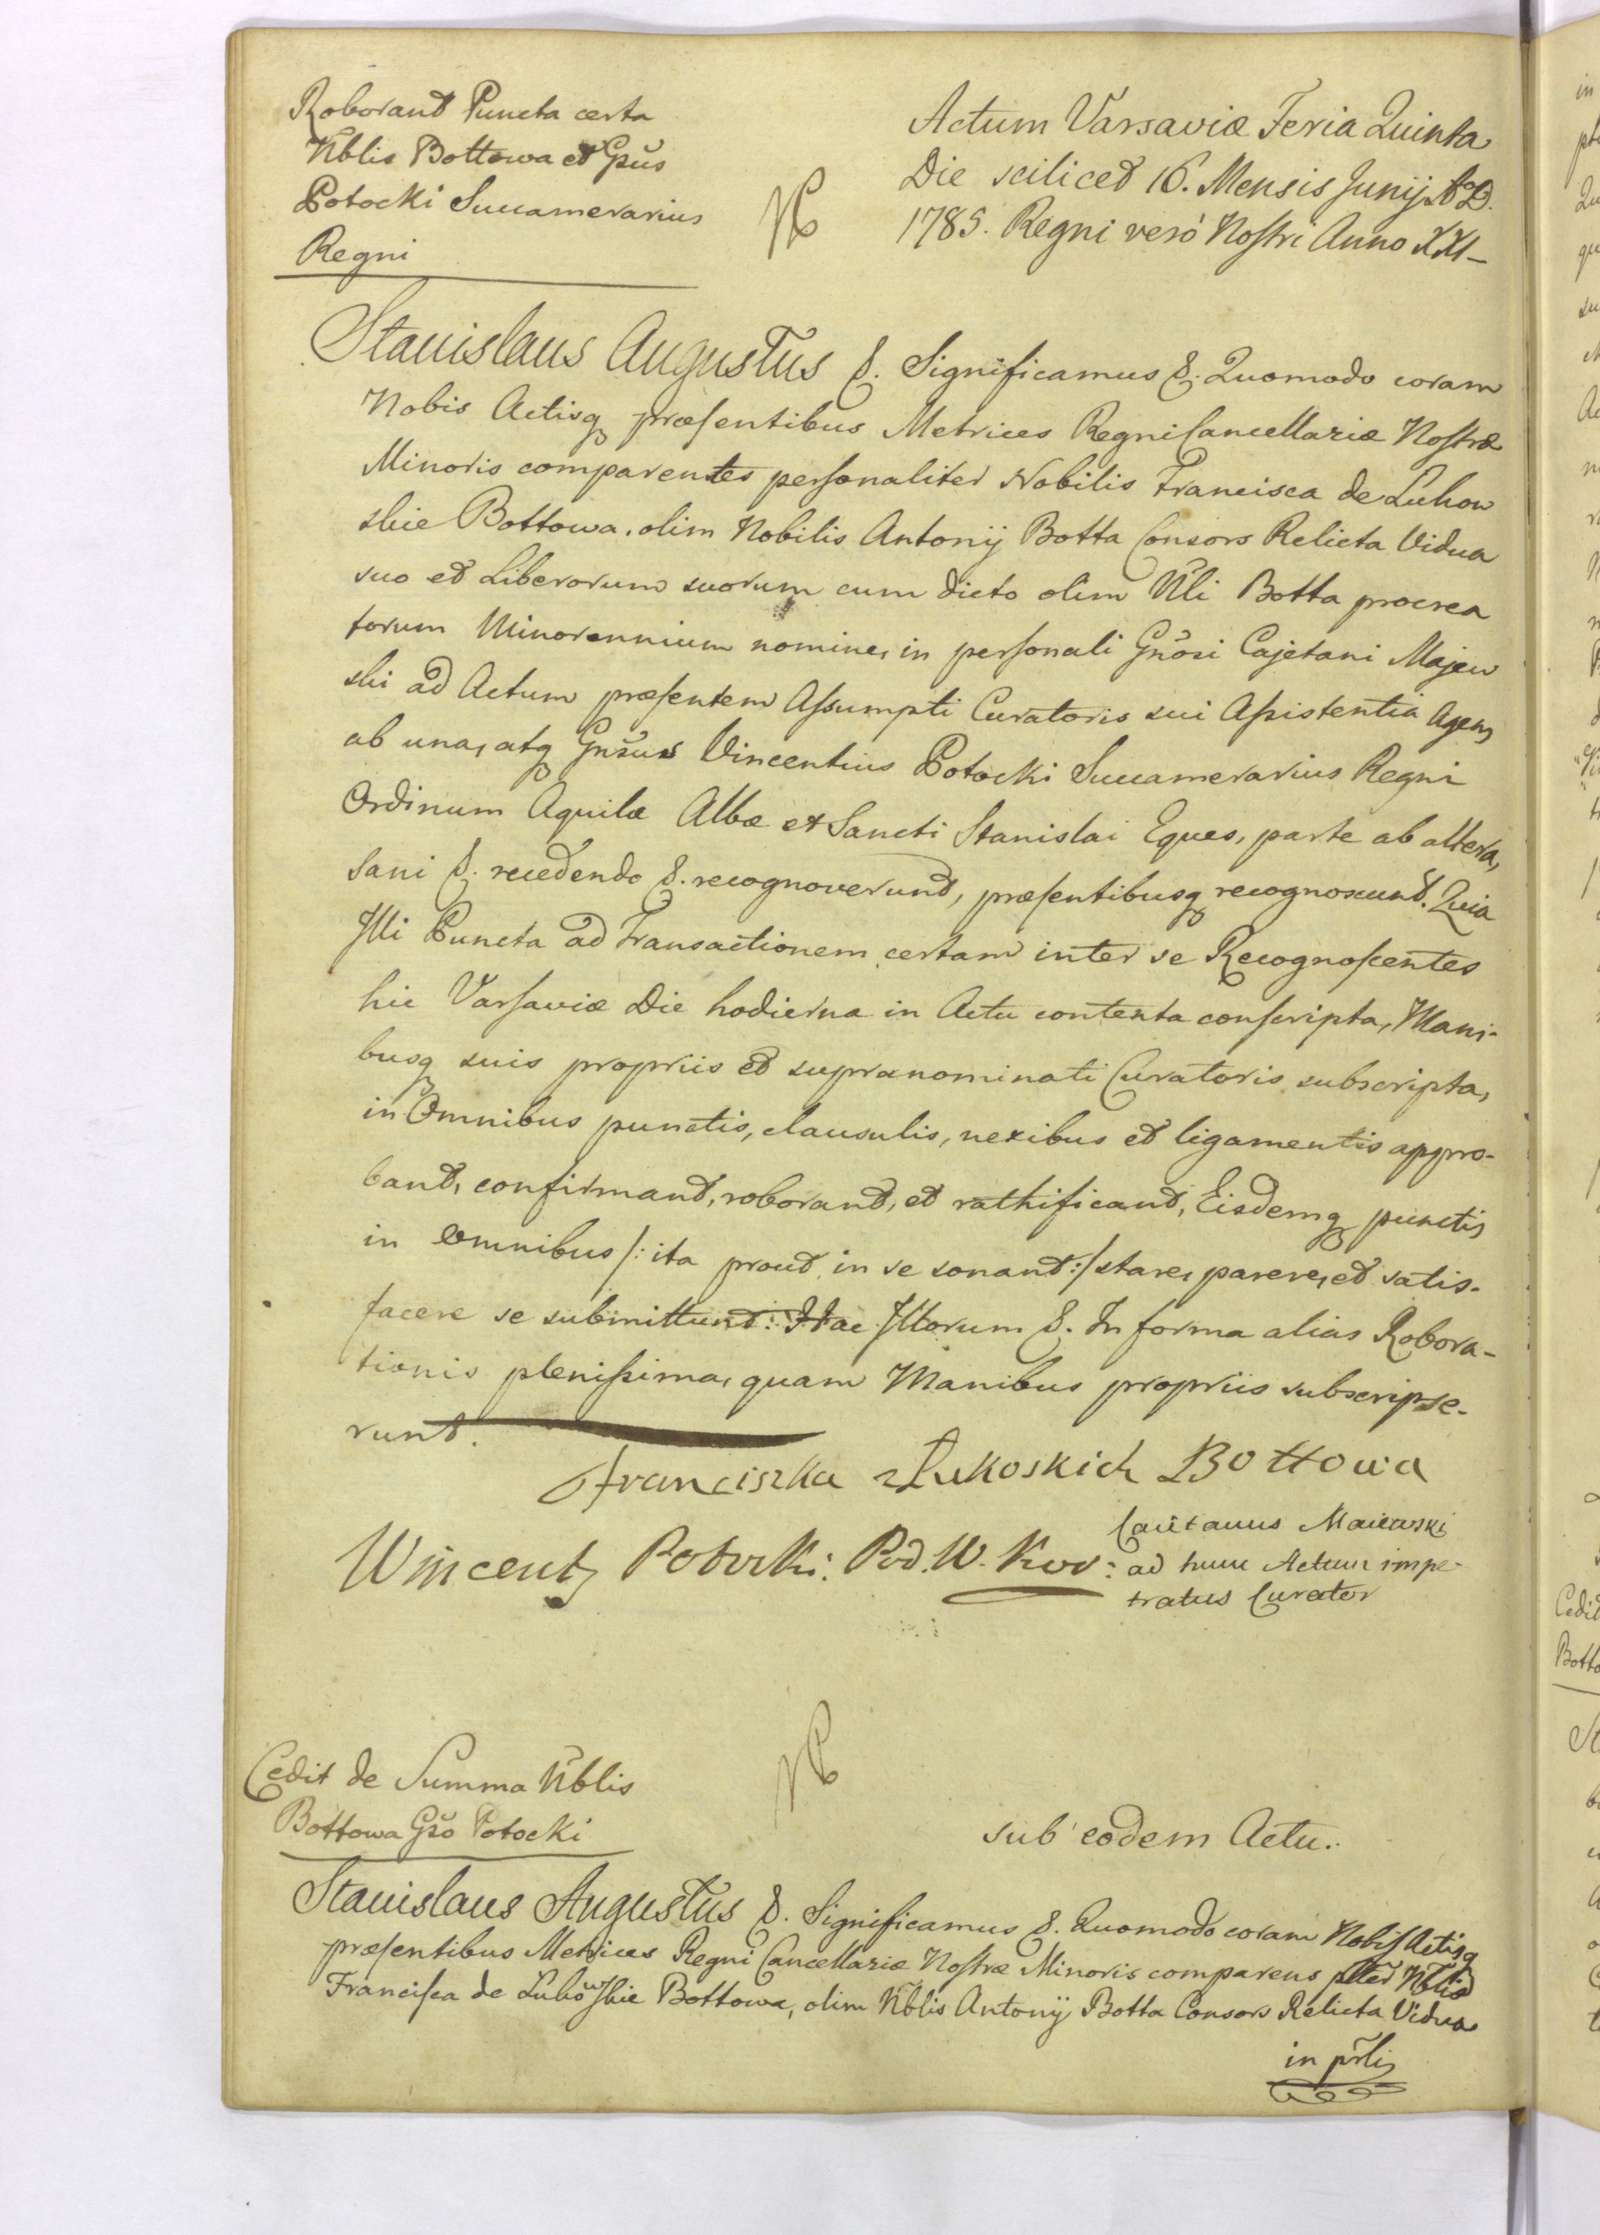 Roborant Puncta certa
Nblis Bottowa et Gnus
Potocki Succamerarius
Regni
Actum Varsaviæ Feria Quinta
Die scilicet 16. Mensis Junij AoD.
1785. Regni veró Nostri Anno XXI-
Stanislaus Augustus &. Significamus &. Quomodo coram
Nobis Actisq præsentibus Metrices Regni Cancellariæ Nostræ
Minoris comparentes personaliter Nobilis Francisca de Łukow
skie Bottowa, olim Nobilis Antonij Botta Consors Relicta Vidua
suo et Liberorum suorum cum dicto olim Nli Botta procrea
torum Minorennium nomine, in personali Gnosi Cajetani Majew
ski ad Actum præsentem Assumpti Curatoris sui Assistentia Agens
ab una, atq Gnsus Vincentius Potocki Succamerarius Regni
Ordinum Aquilæ Albæ et Sancti Stanislai Eques, parte ab altera,
sani &. recedendo &. recognoverunt, præsentibusq recognoscunt. Quia
Illi Puncta ad Transactionem certam inter se Recognoscentes
hic Varsaviæ Die hodierna in Actu contenta conscripta, Mani-
busq suis propriis et supranominati Curatoris subscripta,
in Omnibus punctis, clausulis, nexibus et ligamentis appro-
bant, confirmant, roborant, et rathificant, Eisdemq punctis
in Omnibus /: ita prout in se sonant :/ stare, parere, et satis-
facere se submittunt: Hac Illorum &. In forma alias Robora-
tionis plenissima, quam Manibus propriis subscripse-
runt.
Franciszka z Łukoskich Bottowa
Wincenty Potocki: Pod. W. Kor:
Caietanus Maiewski
ad hunc Actum impe-
tratus Curator
Cedit de Summa Nblis
Bottowa Gso Potocki
sub eodem Actu.
Stanislaus Augustus &. Significamus &. Quomodo coram Nobis Actisq
præsentibus Metrices Regni Cancellariæ Nostræ Minoris comparens plter Nblis
Francisca de Łukowskie Bottowa, olim Nblis Antonij Botta Consors Relicta Vidua
in prli